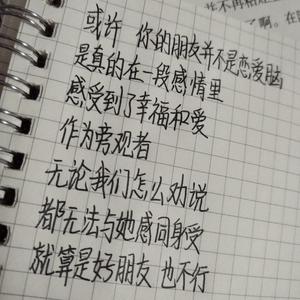 或许 你的朋友并不是恋爱脑
是真的在一段感情里
感受到了幸福和爱
作为旁观者
无论我们怎么劝说
都无法与她感同身受
就算是好朋友 也不行
了啊。在